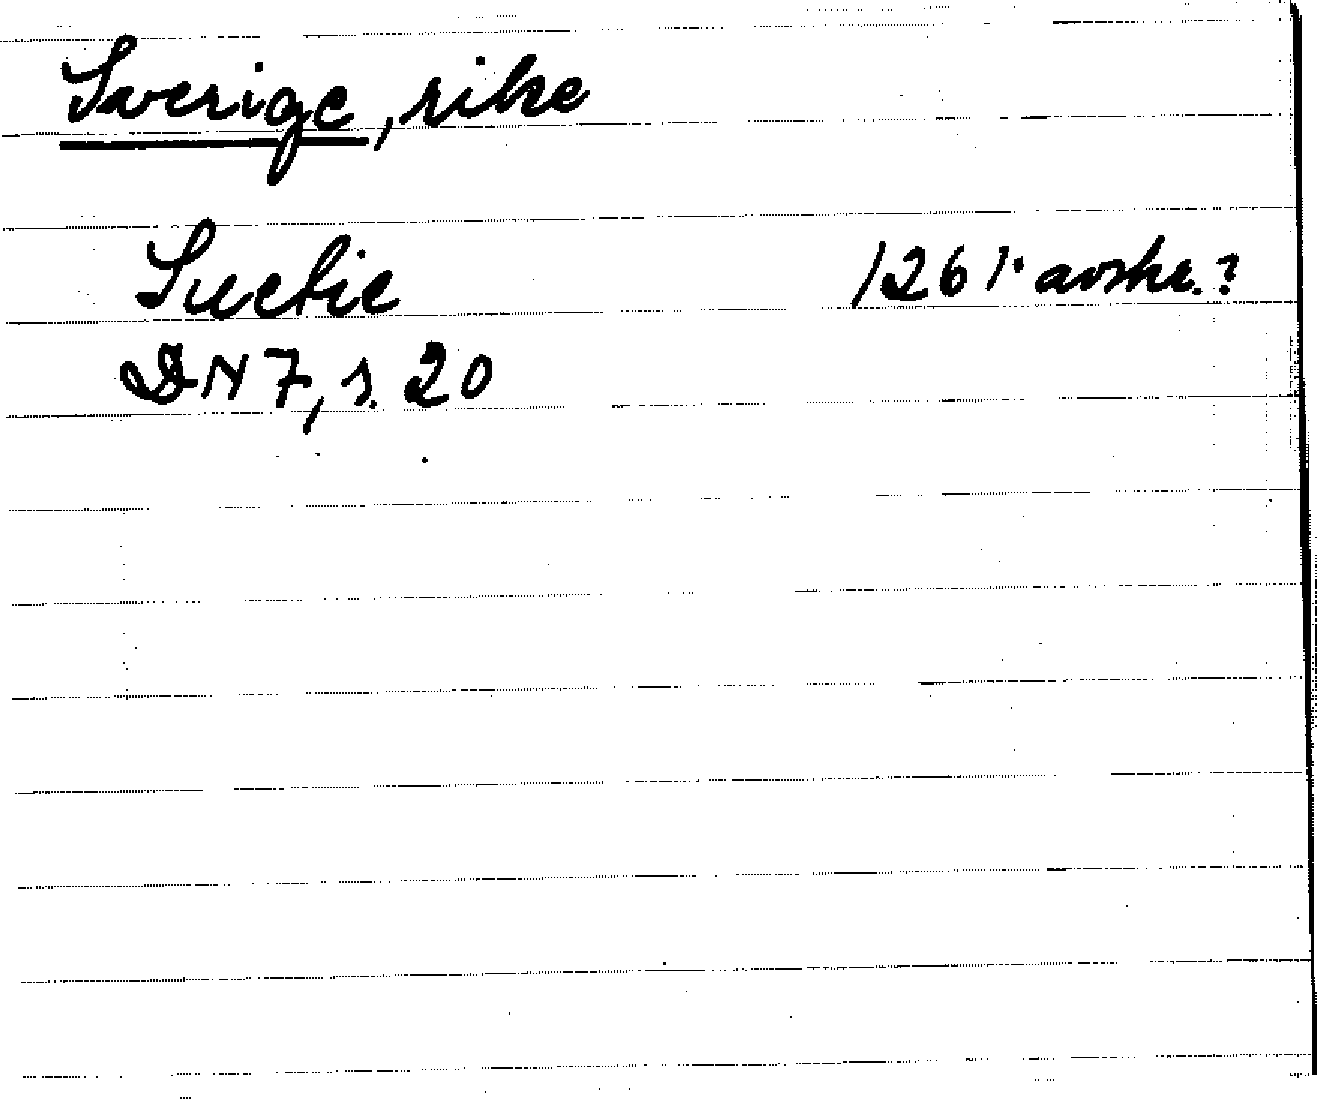 Sverige, rike
Suetie 1261 avskr.?
DN 7, s. 20